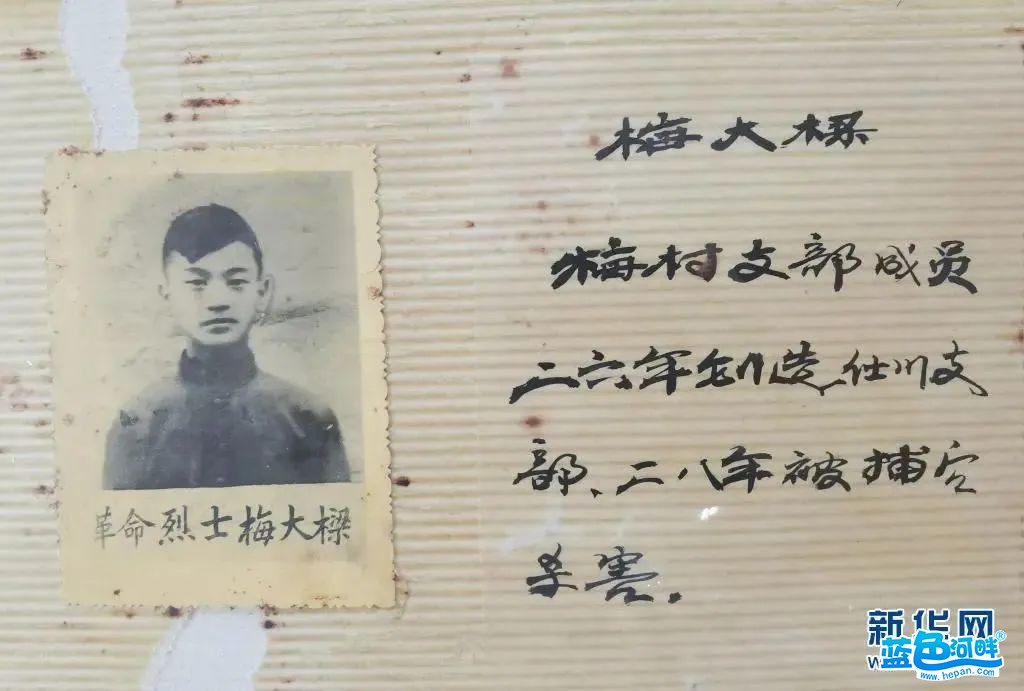 革命烈士梅大樑
梅大樑
梅村支部成员
二六年创造仕川支
部、二八年被捕
杀害.
新华网
蓝色河畔®
www.hepan.com